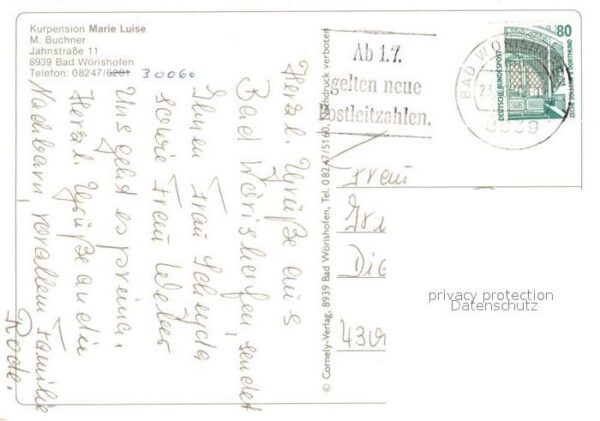 Kurpension Marie Luise
M. Buchner
Jahnstraße 11
8939 Bad Wörishofen
Telefon: 08247/6201 30060
Herzl. Grüße aus
Bad Wörishofen, sendet
Ihnen Frau
sowie Frau Weber
Uns geht es prima.
Herzl. Grüße an die
Nachbarn, vorallem Familie
Rode.
© Cornely-Verlag, 8939 Bad Wörishofen, Tel. 08247/5160, Nachdruck verboten
Ab 1.7.
gelten neue
Postleitzahlen.
BAD WÖRISH
8939
DEUTSCHE BUNDESPOST
80
Frau
privacy protection
Datenschutz